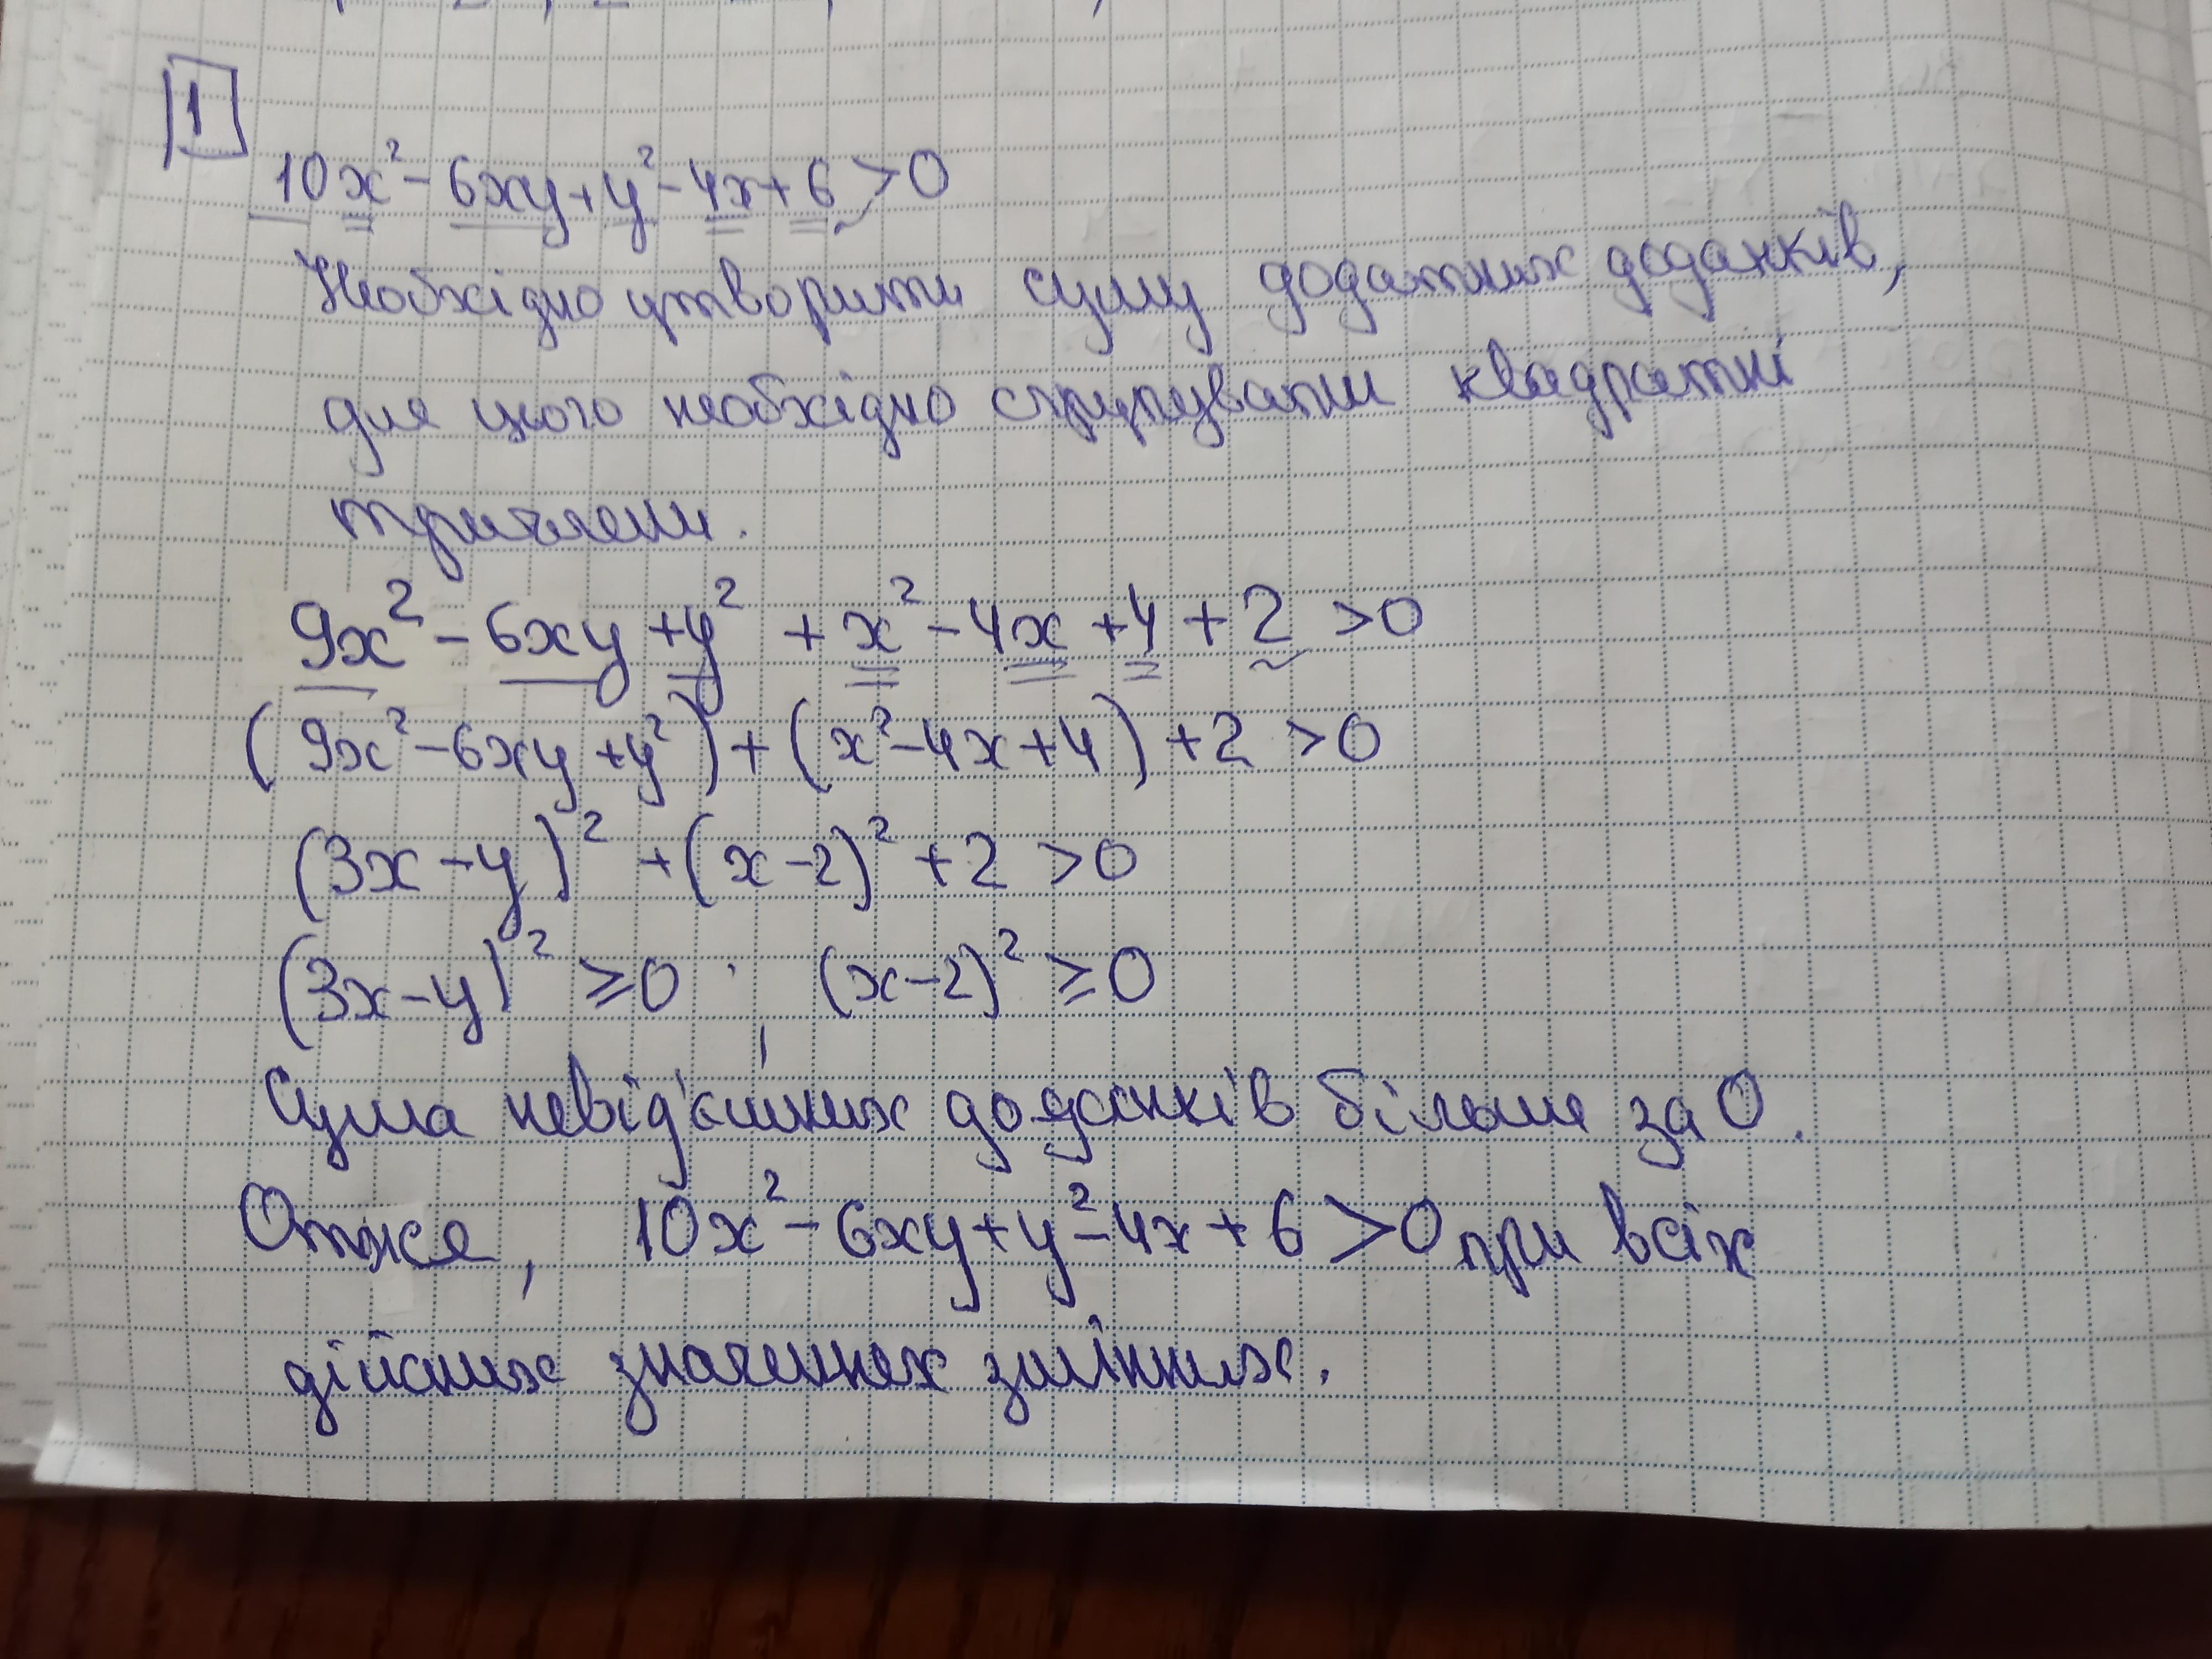 1
10x² - 6xy + y² - 4x + 6 > 0
Необхідно утворити суму додатних доданків,
для цього необхідно струпувати квадратні
тричлени.
9x² - 6xy + y² + x² - 4x + 4 + 2 > 0
(9x² - 6xy + y²) + (x² - 4x + 4) + 2 > 0
(3x - y)² + (x - 2)² + 2 > 0
(3x - y)² ≥ 0 ; (x - 2)² ≥ 0
Сума невід'ємних доданків більше за 0.
Отже, 10x² - 6xy + y² - 4x + 6 > 0 при всіх
дійсних значеннях змінних.